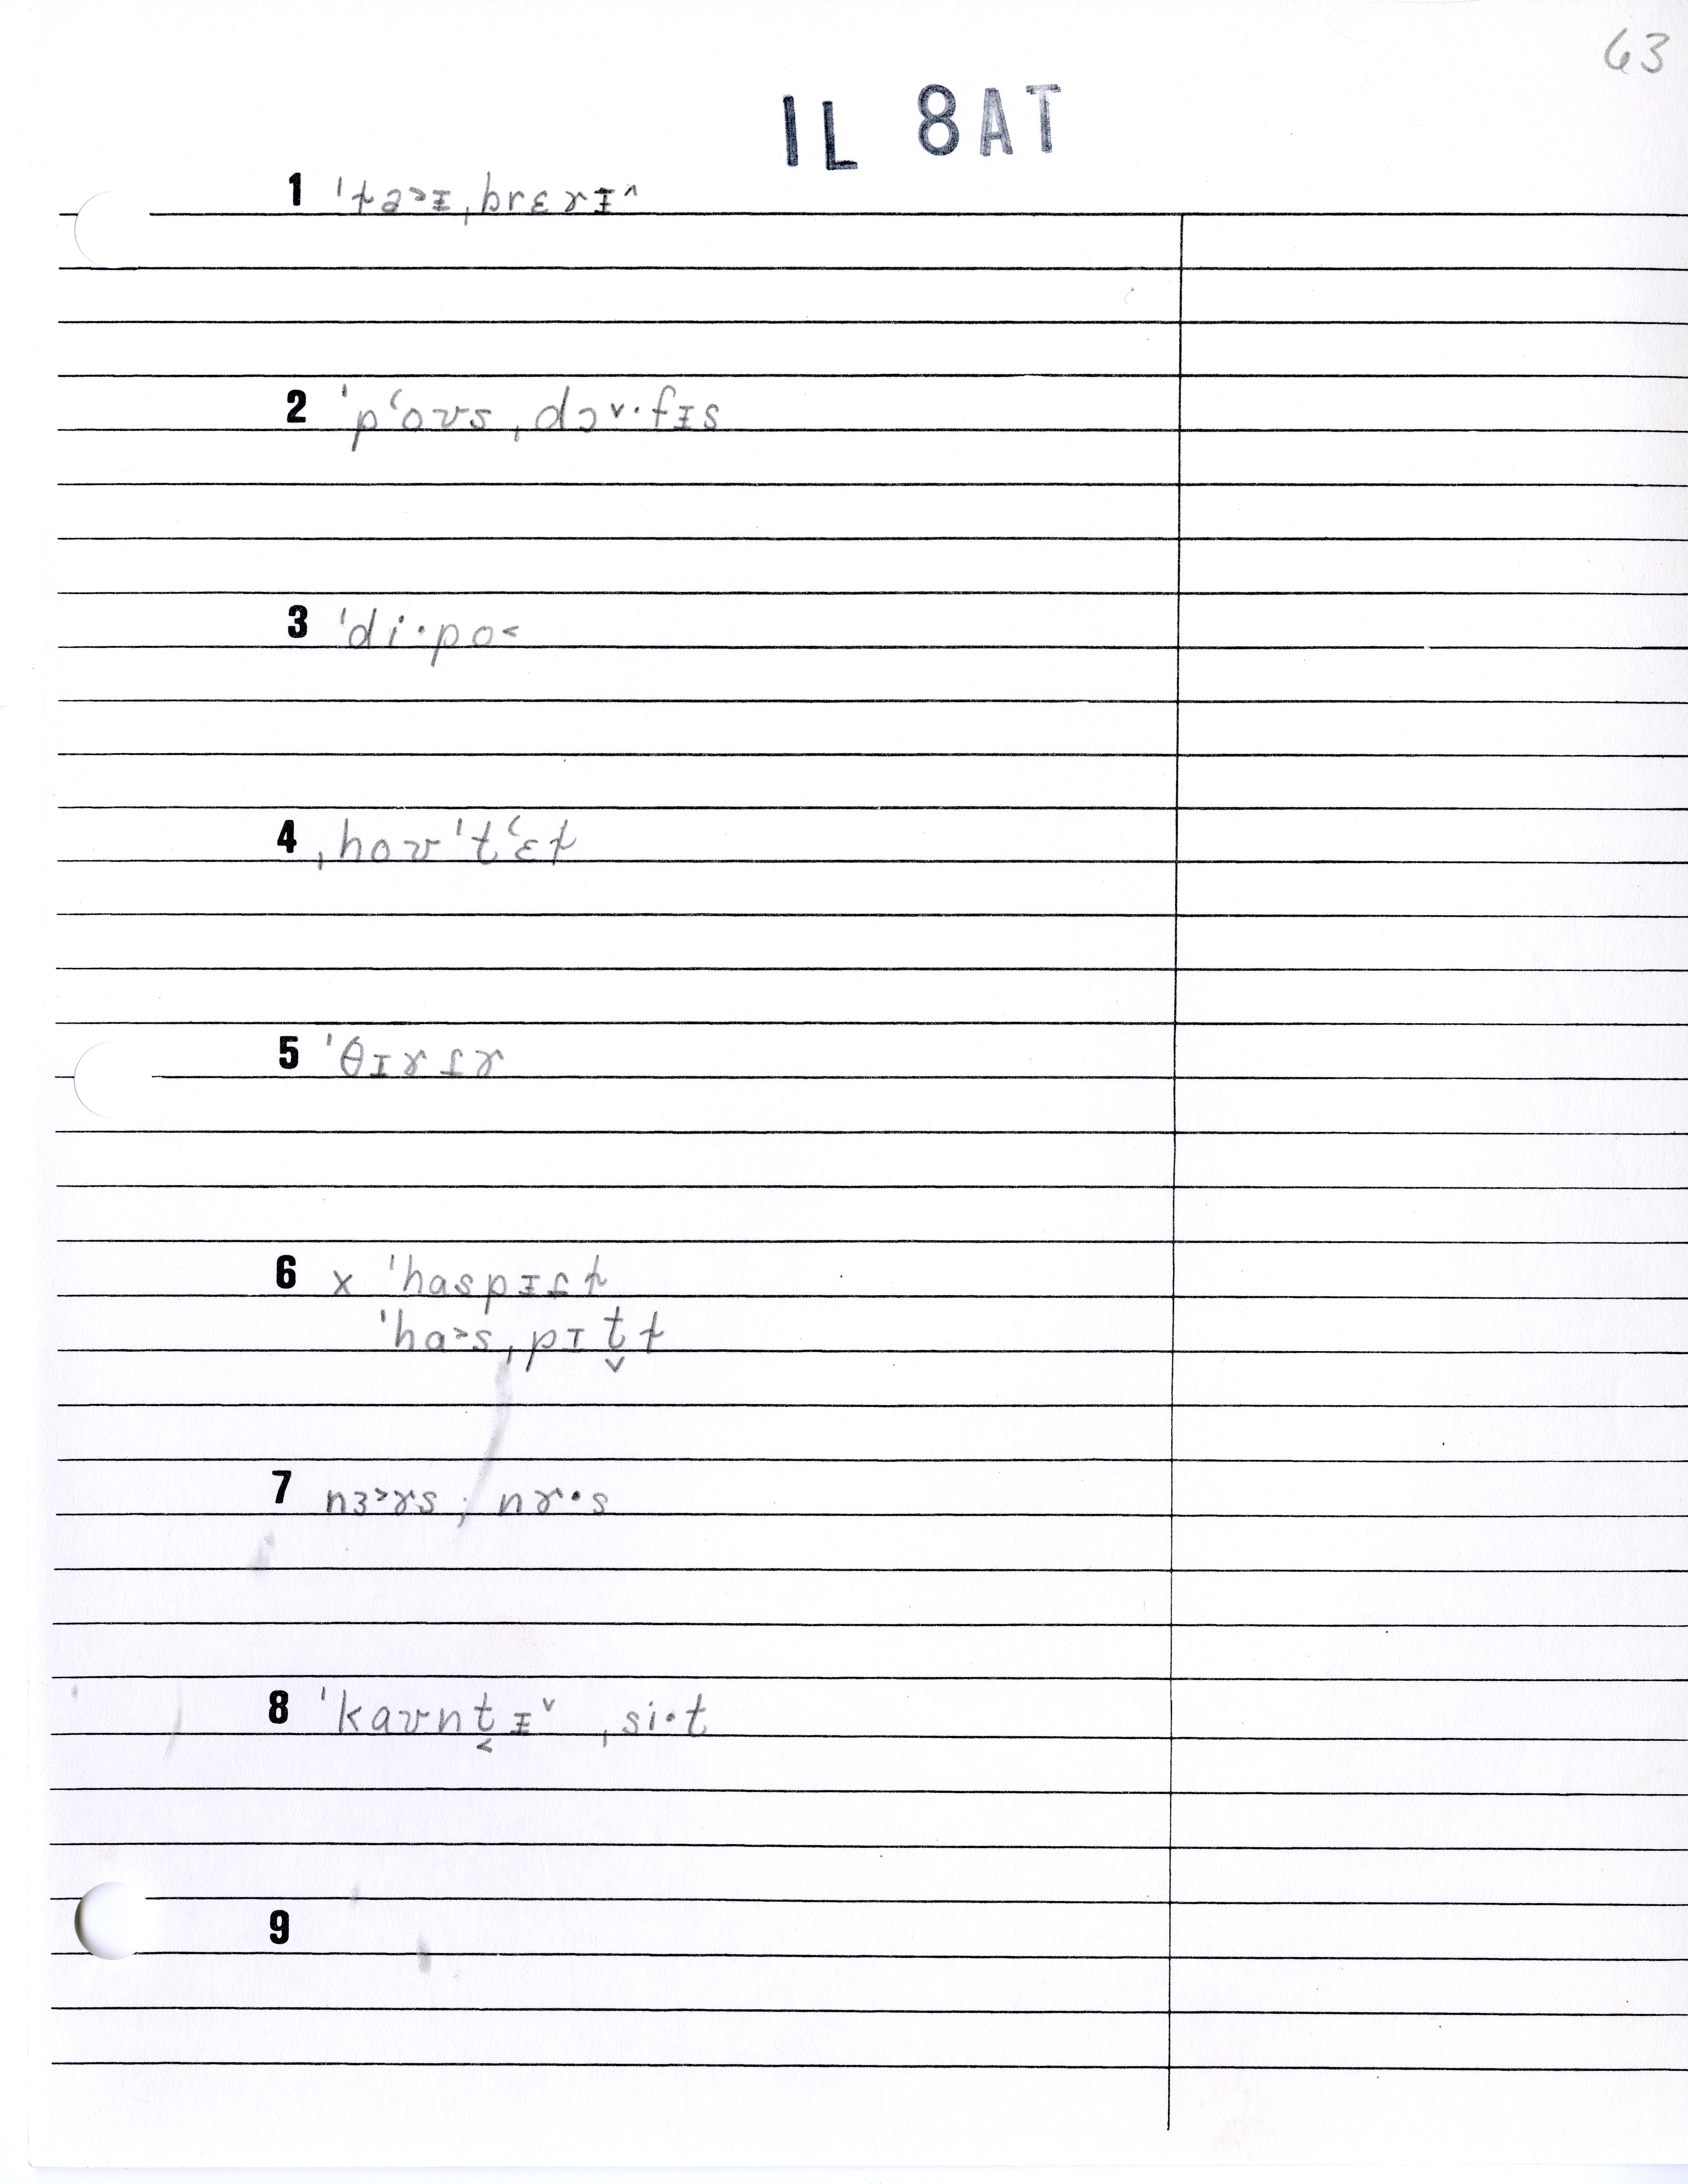 63
IL 8AT
1 ˈɫa˃ᵻˌbrɛɚᵻ˄
2 ˈpʻoʊsˌdɔ˅·fᵻs
3 ˈdi·po˂
4 ˌhoʊˈtʻɛɫ
5 ˈθɪɚɾɚ
6 x ˈhaspᵻɾɫ
ˈha˃sˌpɪt̬ɫ
7 nɜ˃ɚs; nɚ·s
8 ˈkaʊnt͔ᵻ˅ ˌsi·t
9